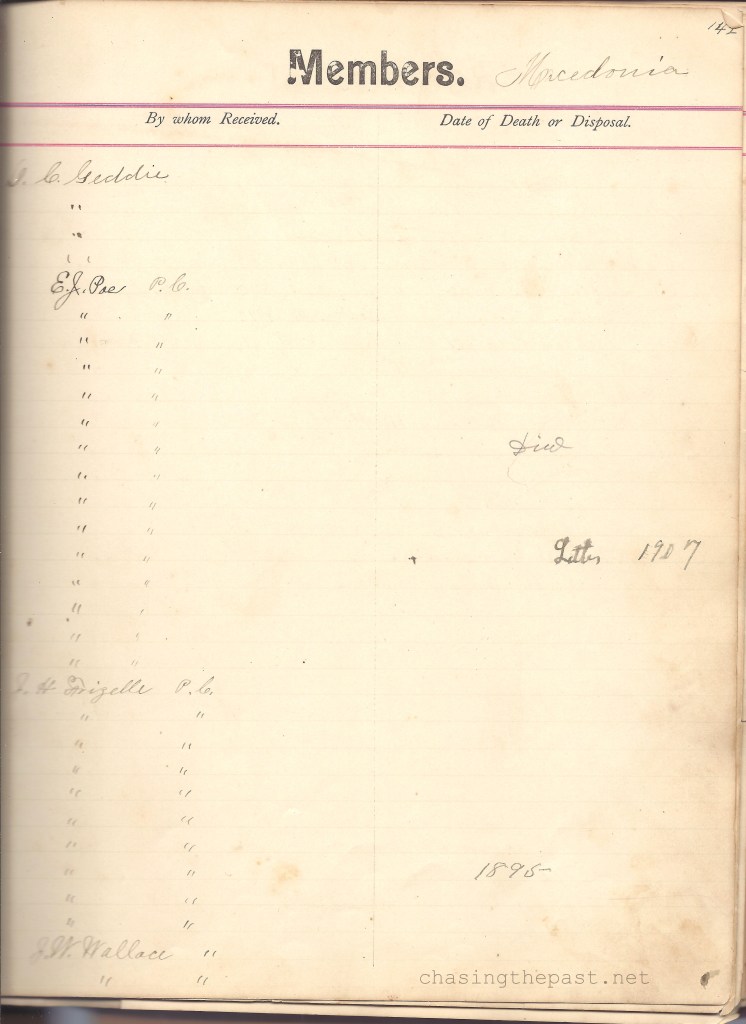 142
Members. Macedonia
By whom Received. Date of Death or Disposal.
J. C. Geddie
"
"
" "
E. J. Poe P. C.
" "
" "
" "
" "
" "
" " Died
" "
" "
" "
" " Letter 1907
" "
" "
" "
" "
J. H. Frizelle P. C.
" "
" "
" "
" "
" "
" "
" " 1895
" "
" "
J. W. Wallace "
" "
chasingthepast.net